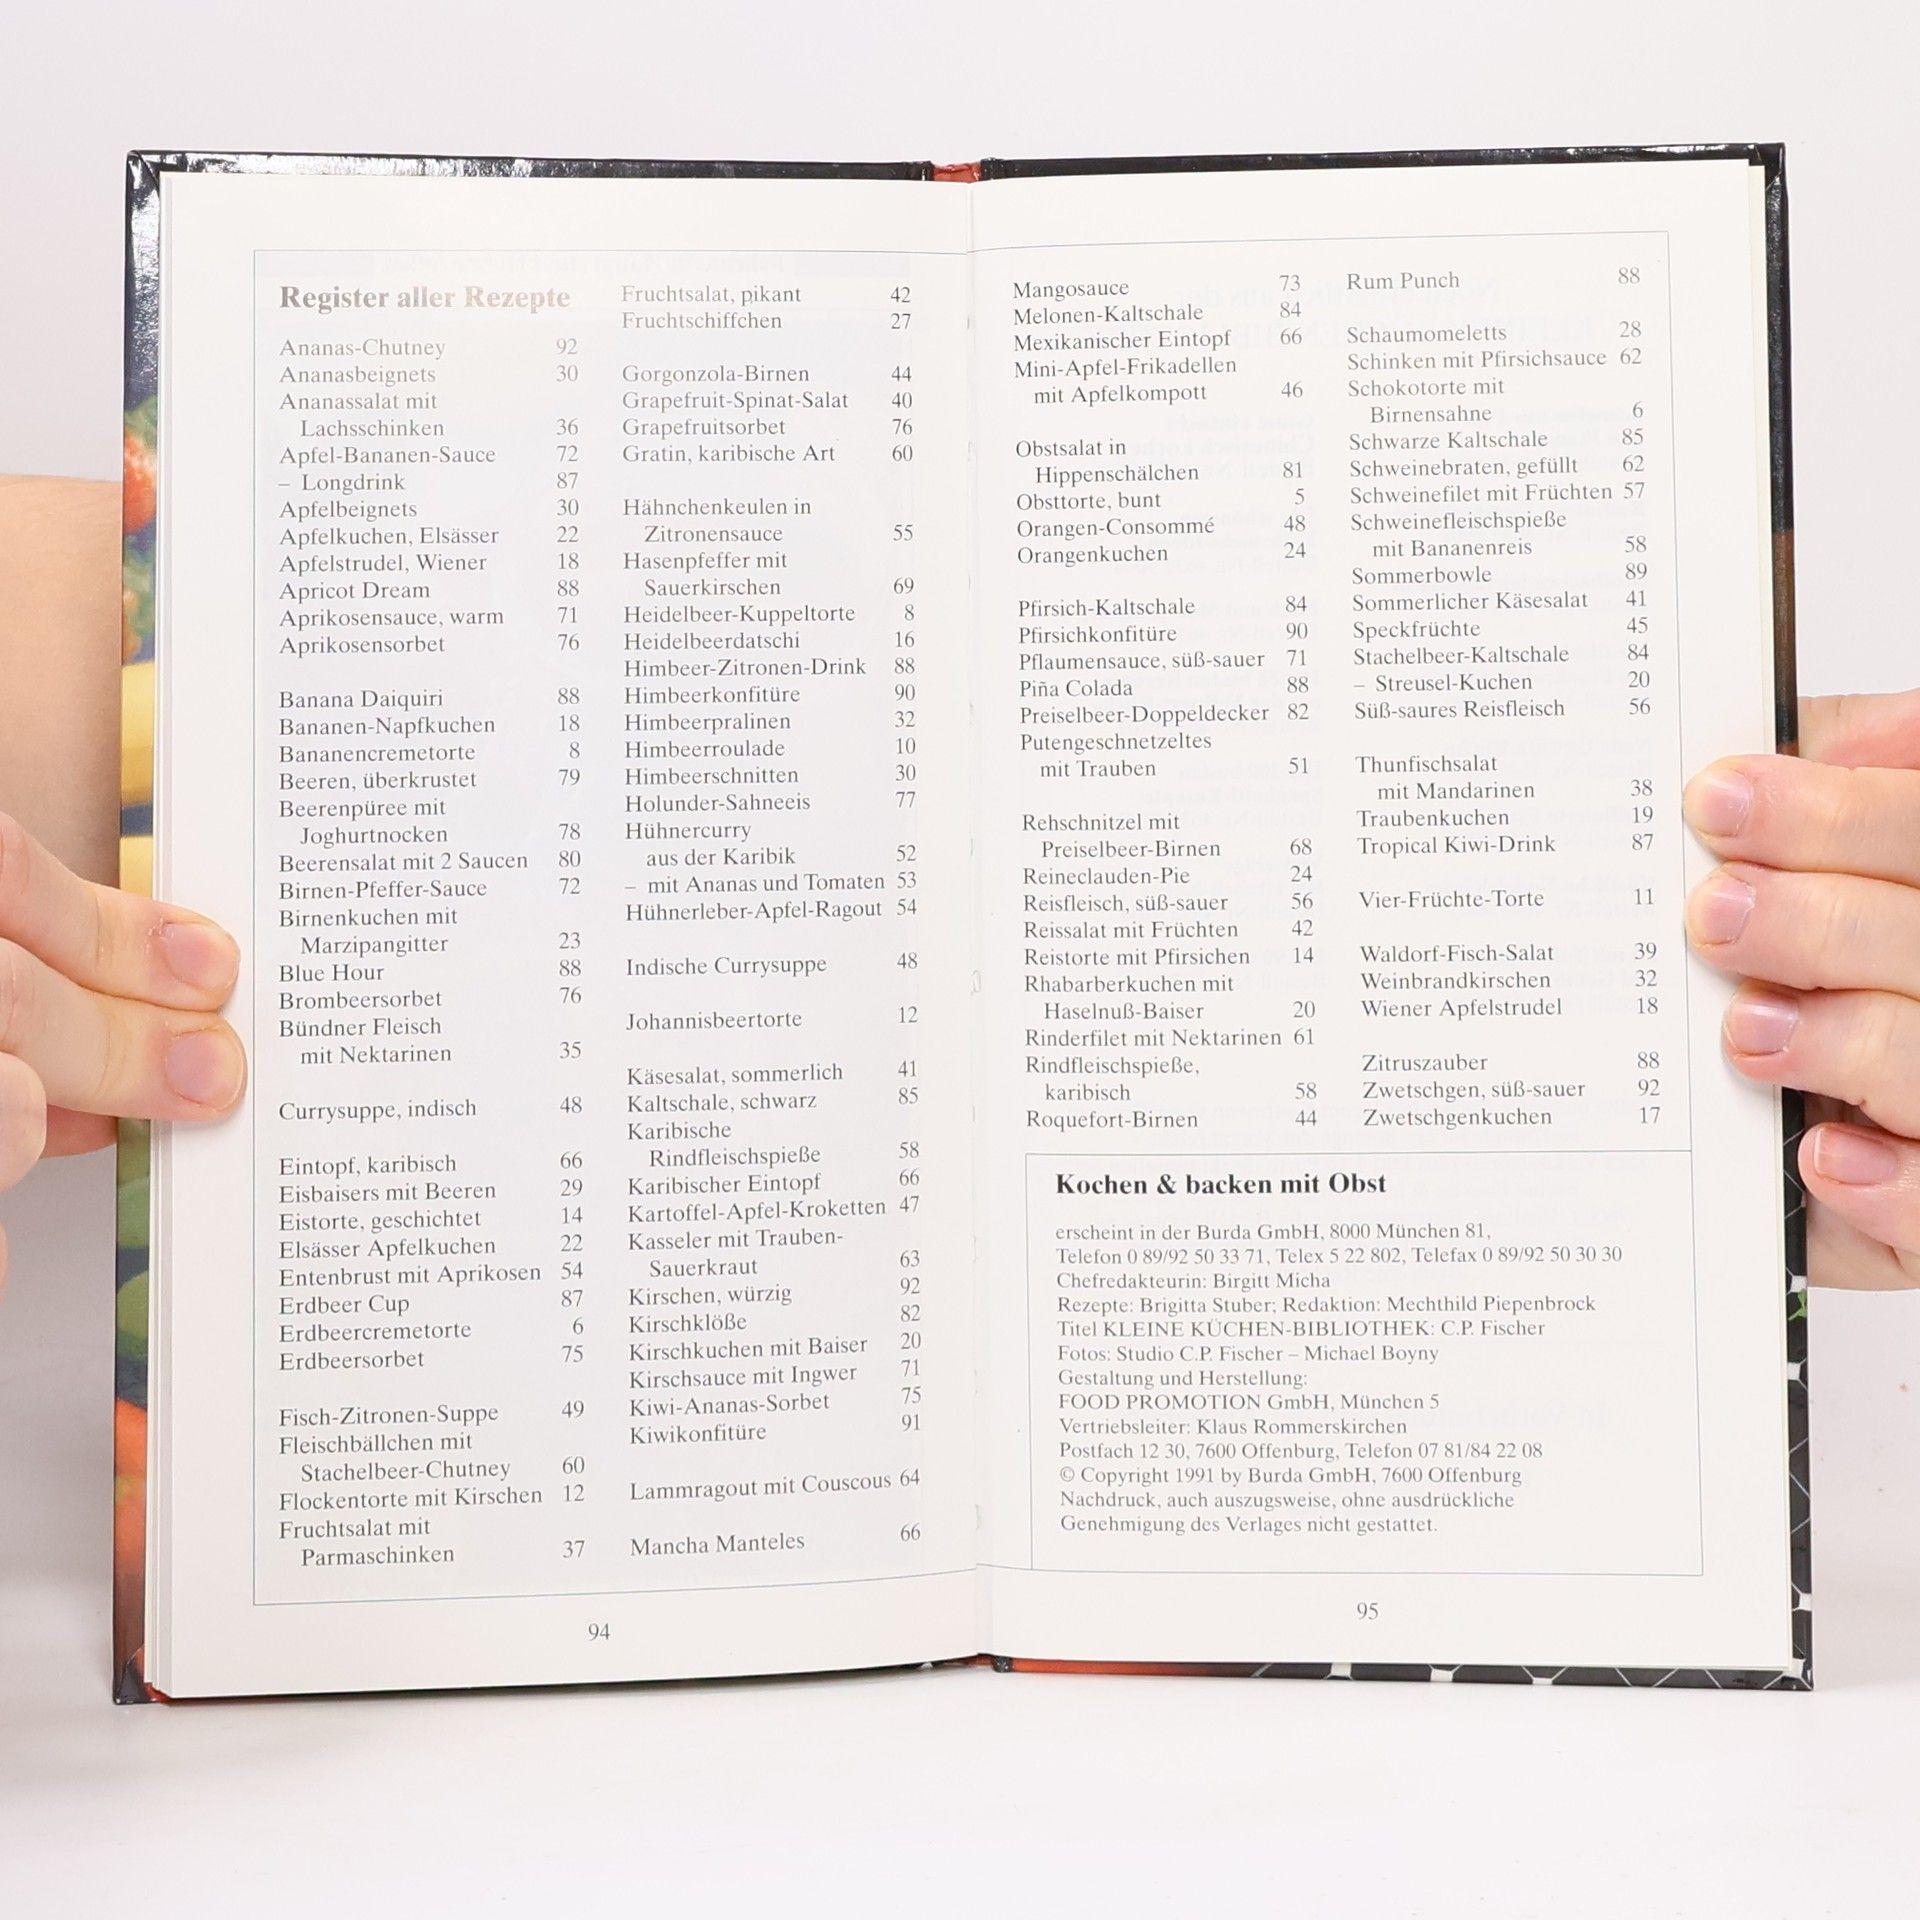 Register aller Rezepte
Ananas-Chutney 92
Ananasbeignets 30
Ananassalat mit
Lachsschinken 36
Apfel-Bananen-Sauce 72
– Longdrink 87
Apfelbeignets 30
Apfelkuchen, Elsässer 22
Apfelstrudel, Wiener 18
Apricot Dream 88
Aprikosensauce, warm 71
Aprikosensorbet 76
Banana Daiquiri 88
Bananen-Napfkuchen 18
Bananencremetorte 8
Beeren, überkrustet 79
Beerenpüree mit
Joghurtnocken 78
Beerensalat mit 2 Saucen 80
Birnen-Pfeffer-Sauce 72
Birnenkuchen mit
Marzipangitter 23
Blue Hour 88
Brombeersorbet 76
Bündner Fleisch
mit Nektarinen 35
Currysuppe, indisch 48
Eintopf, karibisch 66
Eisbaisers mit Beeren 29
Eistorte, geschichtet 14
Elsässer Apfelkuchen 22
Entenbrust mit Aprikosen 54
Erdbeer Cup 87
Erdbeercremetorte 6
Erdbeersorbet 75
Fisch-Zitronen-Suppe 49
Fleischbällchen mit
Stachelbeer-Chutney 60
Flockentorte mit Kirschen 12
Fruchtsalat mit
Parmaschinken 37
Fruchtsalat, pikant 42
Fruchtschiffchen 27
Gorgonzola-Birnen 44
Grapefruit-Spinat-Salat 40
Grapefruitsorbet 76
Gratin, karibische Art 60
Hähnchenkeulen in
Zitronensauce 55
Hasenpfeffer mit
Sauerkirschen 69
Heidelbeer-Kuppeltorte 8
Heidelbeerdatschi 16
Himbeer-Zitronen-Drink 88
Himbeerkonfitüre 90
Himbeerpralinen 32
Himbeerroulade 10
Himbeerschnitten 30
Holunder-Sahneeis 77
Hühnercurry
aus der Karibik 52
– mit Ananas und Tomaten 53
Hühnerleber-Apfel-Ragout 54
Indische Currysuppe 48
Johannisbeertorte 12
Käsesalat, sommerlich 41
Kaltschale, schwarz 85
Karibische
Rindfleischspieße 58
Karibischer Eintopf 66
Kartoffel-Apfel-Kroketten 47
Kasseler mit Trauben-
Sauerkraut 63
Kirschen, würzig 92
Kirschklöße 82
Kirschkuchen mit Baiser 20
Kirschsauce mit Ingwer 71
Kiwi-Ananas-Sorbet 75
Kiwikonfitüre 91
Lammragout mit Couscous 64
Mancha Manteles 66
94
Mangosauce 73
Melonen-Kaltschale 84
Mexikanischer Eintopf 66
Mini-Apfel-Frikadellen
mit Apfelkompott 46
Obstsalat in
Hippenschälchen 81
Obsttorte, bunt 5
Orangen-Consommé 48
Orangenkuchen 24
Pfirsich-Kaltschale 84
Pfirsichkonfitüre 90
Pflaumensauce, süß-sauer 71
Piña Colada 88
Preiselbeer-Doppeldecker 82
Putengeschnetzeltes
mit Trauben 51
Rehschnitzel mit
Preiselbeer-Birnen 68
Reineclauden-Pie 24
Reisfleisch, süß-sauer 56
Reissalat mit Früchten 42
Reistorte mit Pfirsichen 14
Rhabarberkuchen mit
Haselnuß-Baiser 20
Rinderfilet mit Nektarinen 61
Rindfleischspieße,
karibisch 58
Roquefort-Birnen 44
Rum Punch 88
Schaumomeletts 28
Schinken mit Pfirsichsauce 62
Schokotorte mit
Birnensahne 6
Schwarze Kaltschale 85
Schweinebraten, gefüllt 62
Schweinefilet mit Früchten 57
Schweinefleischspieße
mit Bananenreis 58
Sommerbowle 89
Sommerlicher Käsesalat 41
Speckfrüchte 45
Stachelbeer-Kaltschale 84
– Streusel-Kuchen 20
Süß-saures Reisfleisch 56
Thunfischsalat
mit Mandarinen 38
Traubenkuchen 19
Tropical Kiwi-Drink 87
Vier-Früchte-Torte 11
Waldorf-Fisch-Salat 39
Weinbrandkirschen 32
Wiener Apfelstrudel 18
Zitruszauber 88
Zwetschgen, süß-sauer 92
Zwetschgenkuchen 17
Kochen & backen mit Obst
erscheint in der Burda GmbH, 8000 München 81,
Telefon 0 89/92 50 33 71, Telex 5 22 802, Telefax 0 89/92 50 30 30
Chefredakteurin: Birgitt Micha
Rezepte: Brigitta Stuber; Redaktion: Mechthild Piepenbrock
Titel KLEINE KÜCHEN-BIBLIOTHEK: C.P. Fischer
Fotos: Studio C.P. Fischer – Michael Boyny
Gestaltung und Herstellung:
FOOD PROMOTION GmbH, München 5
Vertriebsleiter: Klaus Rommerskirchen
Postfach 12 30, 7600 Offenburg, Telefon 07 81/84 22 08
© Copyright 1991 by Burda GmbH, 7600 Offenburg
Nachdruck, auch auszugsweise, ohne ausdrückliche
Genehmigung des Verlages nicht gestattet.
95